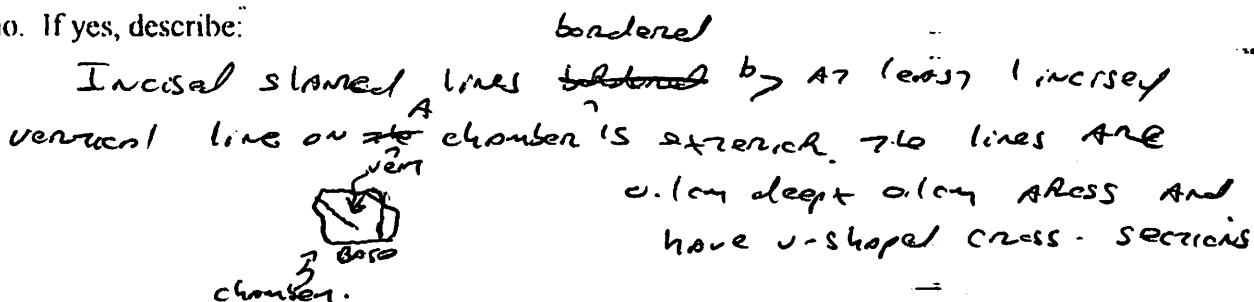 no. If yes, describe:
bordered
Incised slanted lines bordered by at least 1 incised
vertical line on the A chamber's exterior. The lines are
vent
0.1cm deep + 0.1cm across and
have v-shaped cross-sections
Base
chamber.